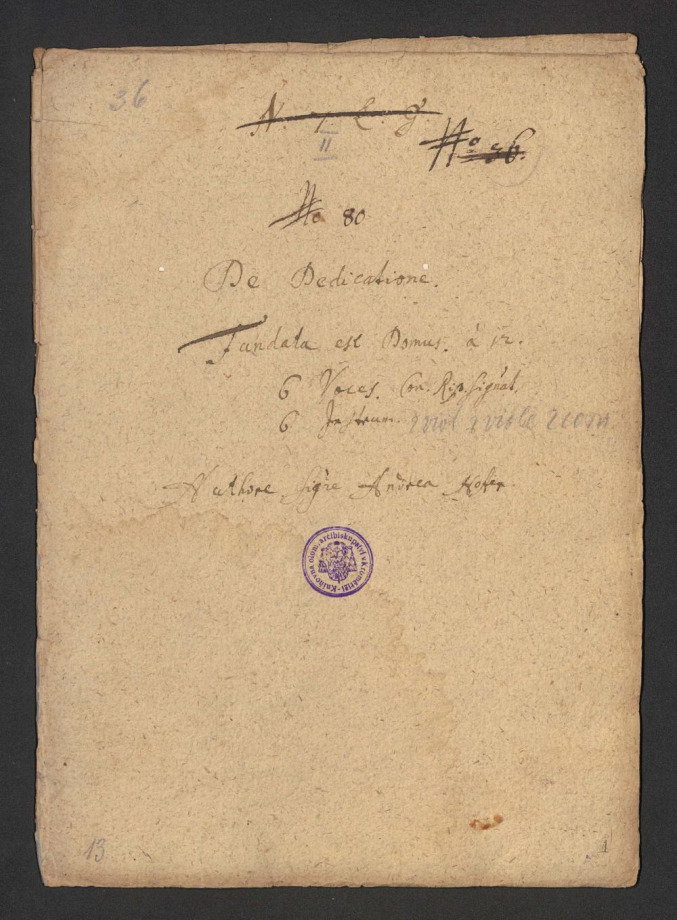 36
N. 7. L. J.
II
No 36.
No 80
De Dedicatione.
Fundata est Domus. à 12.
6 Voces. Con. Rip. Signat.
6 Instrum. 2 viol 2 viole 2 corn
Authore Sigre Andrea Hofer.
Knihovna olom. arcibiskupství v Kroměříži
13
1